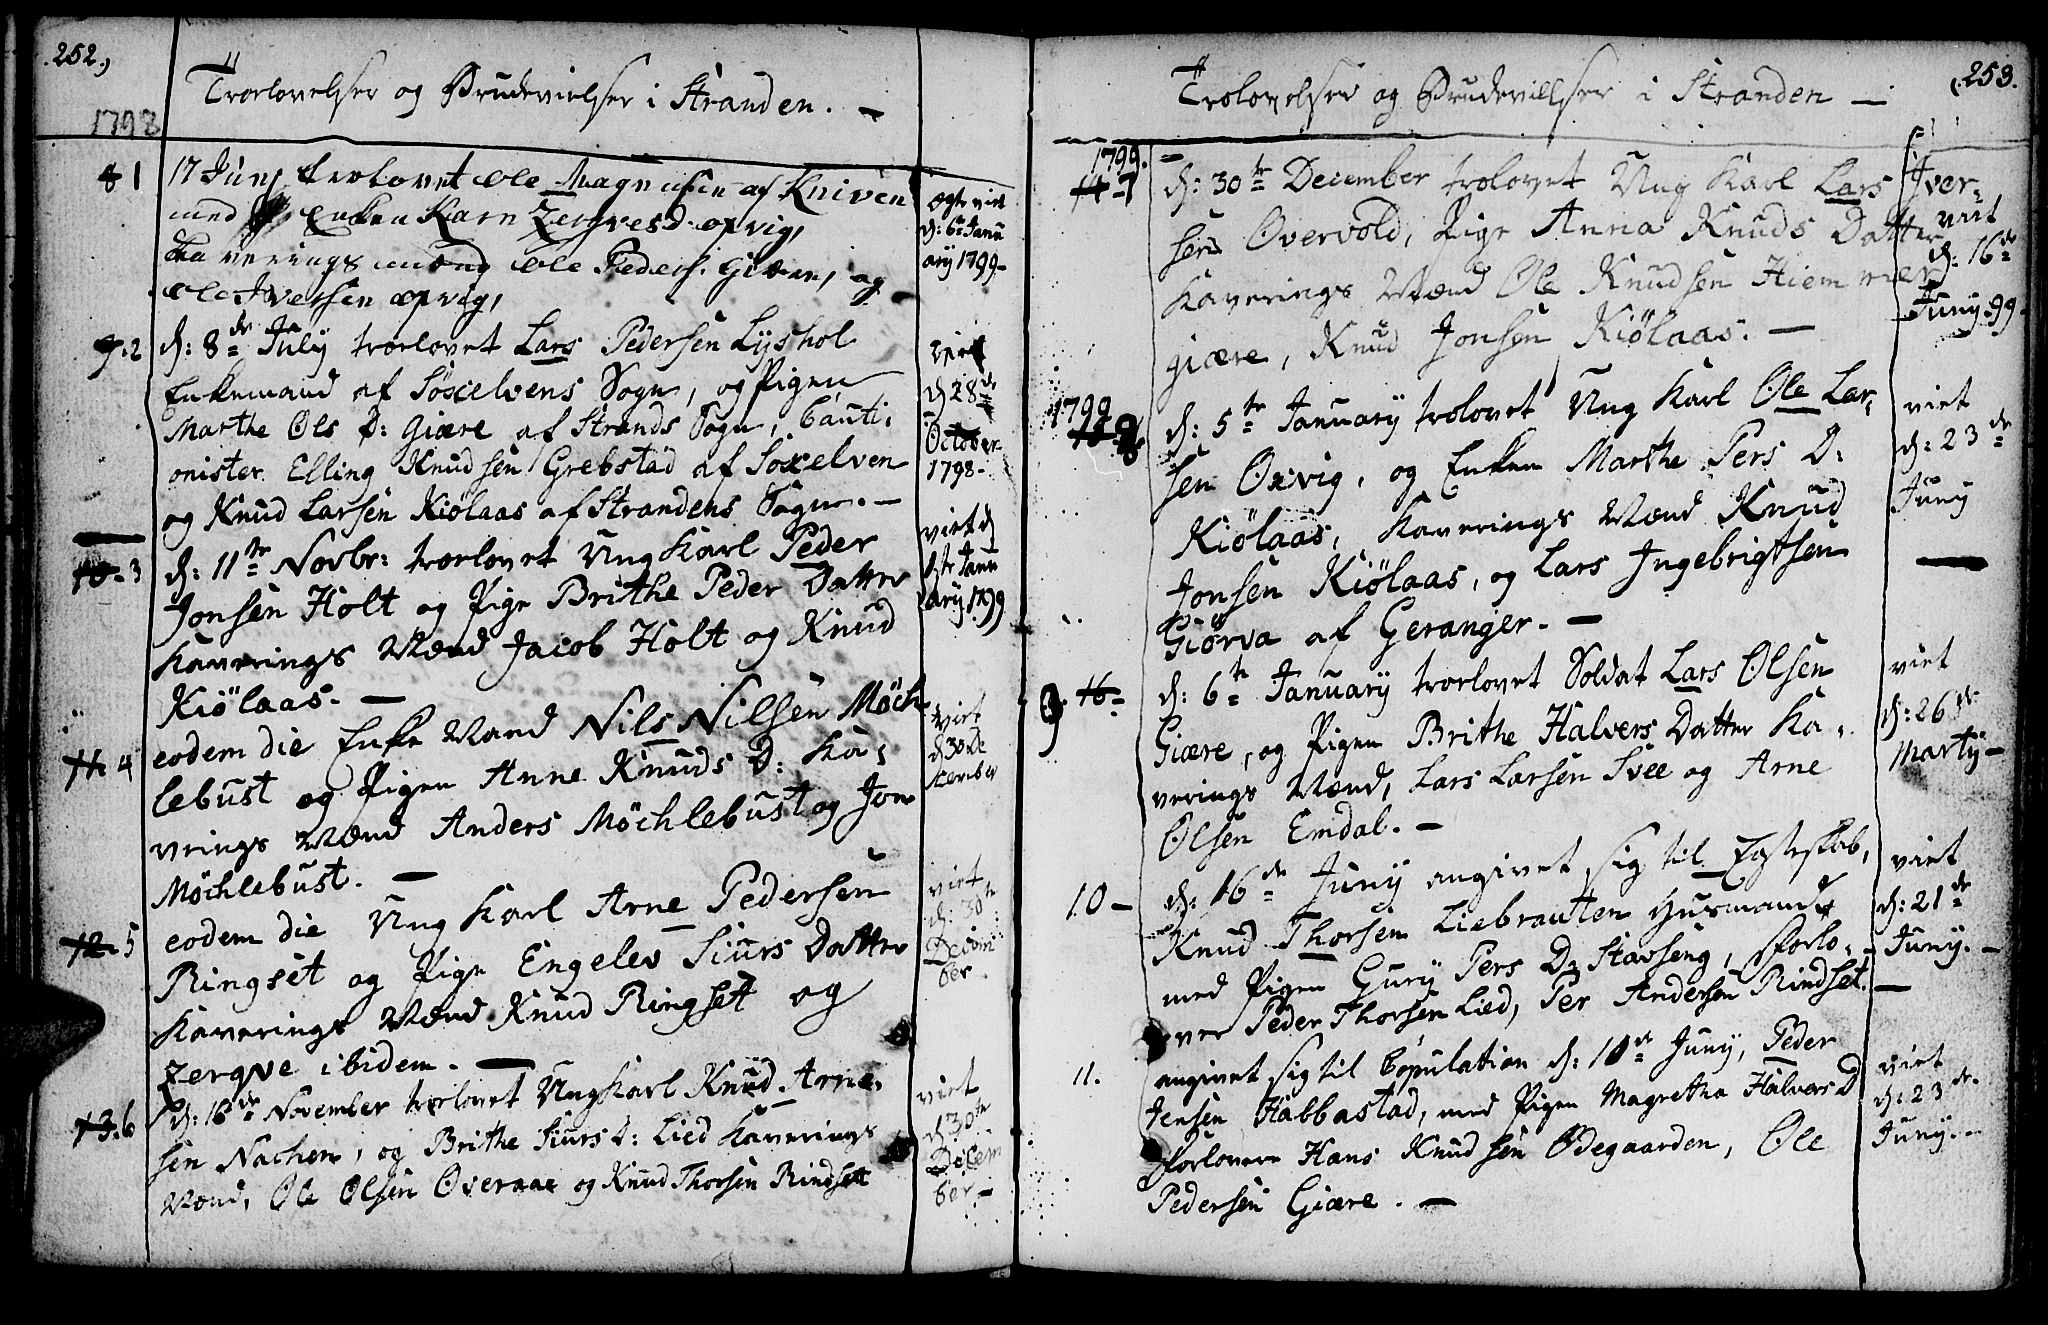 252.)
Trorlovelser og Brudevielser i Stranden. —
1798
8 1
17 Junj trolovet Ole Magnusen af Kniven
med Enken Karn Zergvesd. øpvig,
Kaverings mænd Ole Peders. Giære, og
Ole Iversen øpvig,
ægte viet
d: 6te Janu
ary 1799-
9. 2
d: 8de July trorlovet Lars Pedersen Lyshol
Enkemand af Söxelvens Sogn, og Pigen
Marthe Ols D: Giære af Strands Sogn, Cauti-
onister Elling Knudsen Grebstad af Söxelven
og Knud Larsen Kiölaas af Strandens Sogn. —
viet
d 28de
October
1798-
10-3
d: 11te Novbr: trorlovet Ung Karl Peder
Jonsen Holt og Pige Brithe Peder Datter
Kaverings Mænd Jacob Holt og Knud
Kiölaas. —
viet d
Janu
ary 1799
11. 4
eodem die Enke Mand Nils Nilsen Möch
lebust og Pigen Anne Knuds D: Ka-
vrings Mænd Anders Möchlebust og Jon
Möchlebust. —
viet
d 30 De
cember
12. 5
eodem die Ung Karl Arne Pedersen
Ringset og Pige Engelev Siurs Datter
Kaverings Mænd Knud Ringset og
Zergve ibidem. —
viet
d: 30te
Decem
ber
13. 6
d: 16de November trorlovet Ung Karl Knud Arne-
sen Nachen, og Brithe Siurs D: Lied Kaverings
Mænd, Ole Olsen Overaae og Knud Thorsen Rindset
viet
d 30te
Decem
ber —
(253.
Trolovelser og Brudevillser i Stranden —
1799.
14-7
d: 30te December trolovet Ung Karl Lars Iver-
sen Overvold, Pige Anna Knuds Datter
Kaverings Mænd Ole Knudsen Hiemmer
giære, Knud Jonsen Kiölaas. —
viet
d: 16de
Juny 99.
1799
15 8
d: 5te January trolovet Ung Karl Ole Lar-
sen Oxvig, og Enken Marthe Pers D:
Kiölaas, Kaverings Mænd Knud
Jonsen Kiölaas, og Lars Ingebrigtsen
Giörva af Geranger. —
viet
d: 23de
Juny
9 16-
d: 6te January trorlovet Soldat Lars Olsen
Giære, og Pigen Brithe Halvers Datter Ka-
verings Mænd, Lars Larsen Svee og Arne
Olsen Emdal. —
viet
d: 26de
Marty —
10 —
d: 16de Juny angivet sig til Egteskab,
Knud Thorsen Liebrauten Husmand
med Pigen Gury Pers D. Stavseng, Forlo-
ver Peder Thorsen Lied, Per Andersen Rindset. —
viet
d: 21de
Juny. —
11.
angivet sig til Copulation d: 10de Juny, Peder
Jensen Habbastad, med Pigen Magretha Halvers D
Forlovere Hans Knudsen Ödegaarden, Ole
Pedersen Giære. —
viet
d: 23de
Juny. —